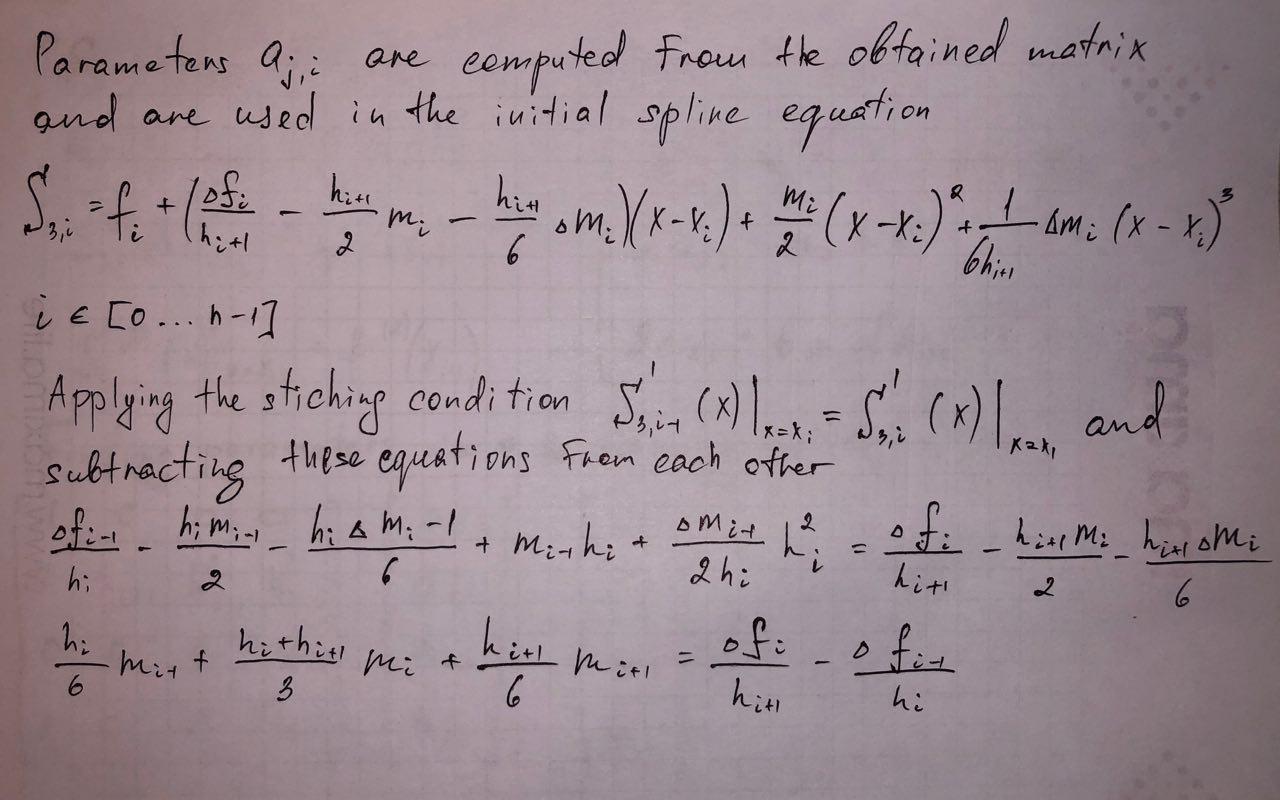 Parameters a_{j,i} are computed from the obtained matrix
and are used in the initial spline equation
S_{3,i} = f_i + (Δf_i/h_{i+1} - h_{i+1}/2 m_i - h_{i+1}/6 Δm_i)(x-x_i) + m_i/2 (x-x_i)^2 + 1/(6h_{i+1}) Δm_i (x-x_i)^3
i ∈ [0 ... n-1]
Applying the stiching condition S'_{3,i-1}(x)|_{x=x_i} = S'_{3,i}(x)|_{x=x_1} and
subtracting these equations from each other
Δf_{i-1}/h_i - h_i m_{i-1}/2 - h_i Δm_i-1/6 + m_{i-1} h_i + Δm_{i-1}/(2h_i) h_i^2 = Δf_i/h_{i+1} - h_{i+1} m_i/2 - h_{i+1} Δm_i/6
h_i/6 m_{i-1} + (h_i+h_{i+1})/3 m_i + h_{i+1}/6 m_{i+1} = Δf_i/h_{i+1} - Δf_{i-1}/h_i